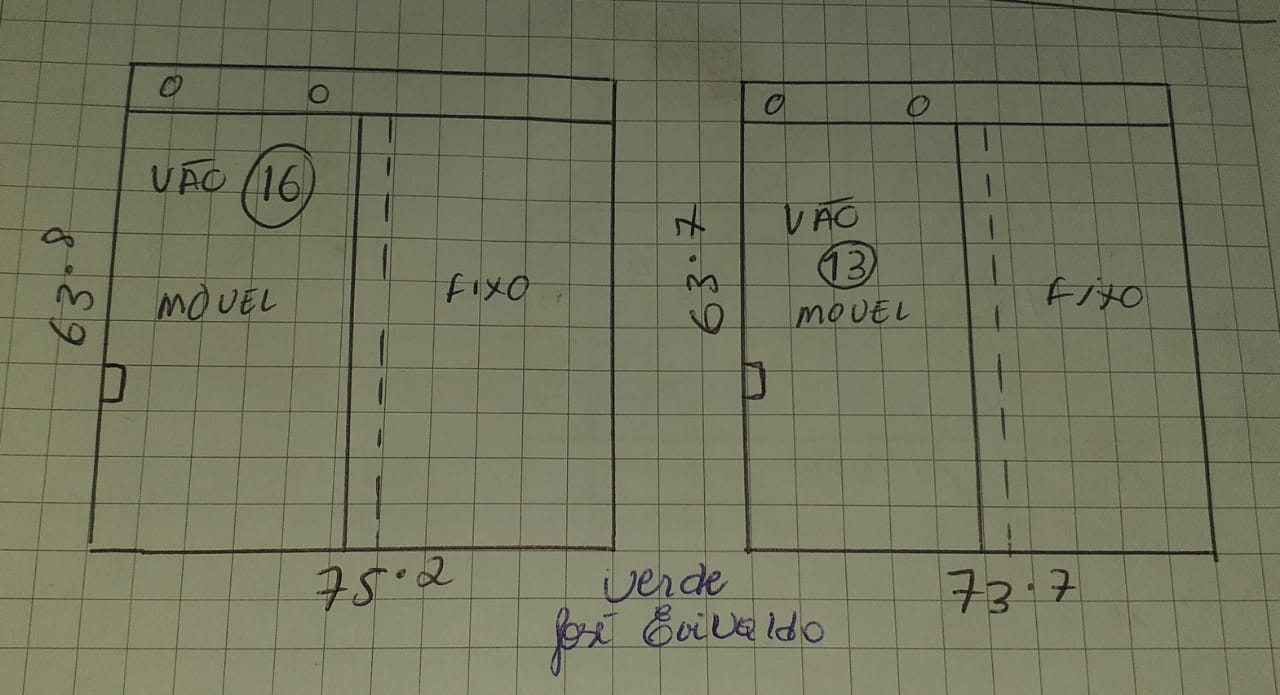 VÃO 16
MOVEL
FIXO
63.8
75.2
VÃO
13
MOVEL
FIXO
63.7
73.7
verde
José Erivaldo